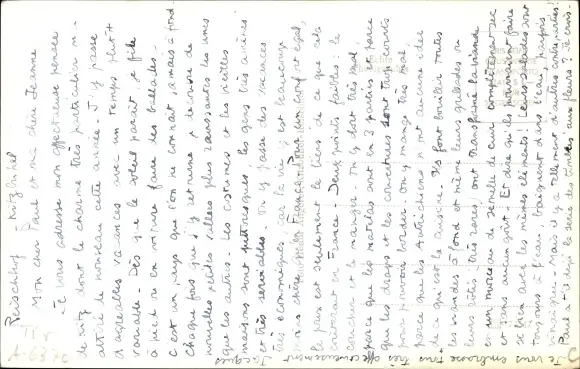 Reischhof Kitzbühel
Mon cher Paul et ma chère Jeanne
Je vous adresse mon affectueuse pensée
de Kitz dont le charme très particulier m'a
attiré de nouveau cette année. J'y passe
d'agréables vacances avec un temps plutôt
variable. Dès que le soleil paraît je file
à pied ou en voiture faire des ballades.
C'est un pays que l'on ne connaît jamais à fond
Chaque fois que j'y retourne je découvre de
nouvelles petites vallées plus ravissantes les unes
que les autres. Les costumes et les vieilles
maisons sont pittoresques les gens très amènes
et très serviables. On y passe des vacances
très économiques, car la vie y est beaucoup
moins chère qu'en France. Pour un confort égal,
le prix est seulement le tiers de ce que cela
coûterait en France. Deux points faibles: le
coucher et le manger. On y dort très mal
parce que les matelas sont en 3 parties et parce
que les draps et les couvertures sont trop courts
pour pouvoir border. On y mange très mal
parce que les Autrichiens n'ont aucune idée
de ce qu'est la cuisine. Ils font bouillir toutes
les viandes à fond et même leurs grillades ou
leurs rôtis, très rares, sont
en un morceau de semelle de cuir complètement sec
et sans aucun goût. Et dire qu'ils pourraient faire
si bien avec les mêmes éléments! Leurs salades sont
toujours à l'eau, baignent dans l'eau, parfois
vinaigrée. Mais il y a tellement d'autres
Paul a-t-il déjà le sens des
Je vous embrasse tous très affectueusement Jacques